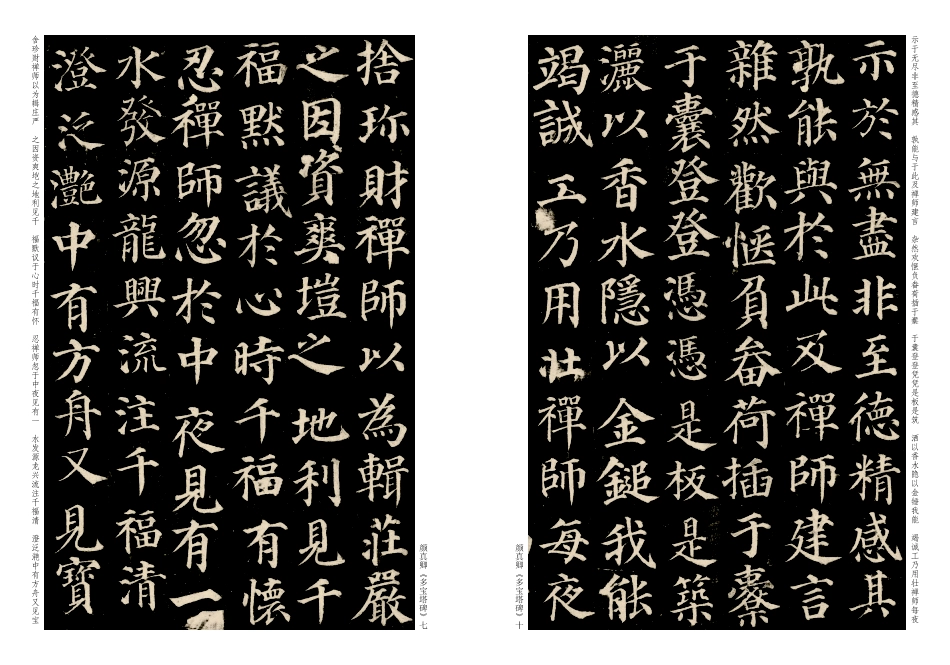 示于无尽非至德精感其　孰能与于此及禅师建言　杂然欢惬负畚荷插于橐　于囊登登凭凭是板是筑　洒以香水隐以金锤我能　竭诚工乃用壮禅师每夜
示於無盡非至德精感其
孰能與於此及禪師建言
雜然歡愜負畚荷插于橐
于囊登登憑憑是板是築
灑以香水隱以金鎚我能
竭誠工乃用壯禪師每夜
颜真卿《多宝塔碑》十
颜真卿《多宝塔碑》七
捨珎財禪師以為輯莊嚴
之因資爽塏之地利見千
福默議於心時千福有懷
忍禪師忽於中夜見有一
水發源龍興流注千福清
澄泛灧中有方舟又見寶
舍珍财禅师以为楫庄严　之因资爽垲之地利见千　福默议于心时千福有怀　忍禅师忽于中夜见有一　水发源龙兴流注千福清　澄泛滟中有方舟又见宝